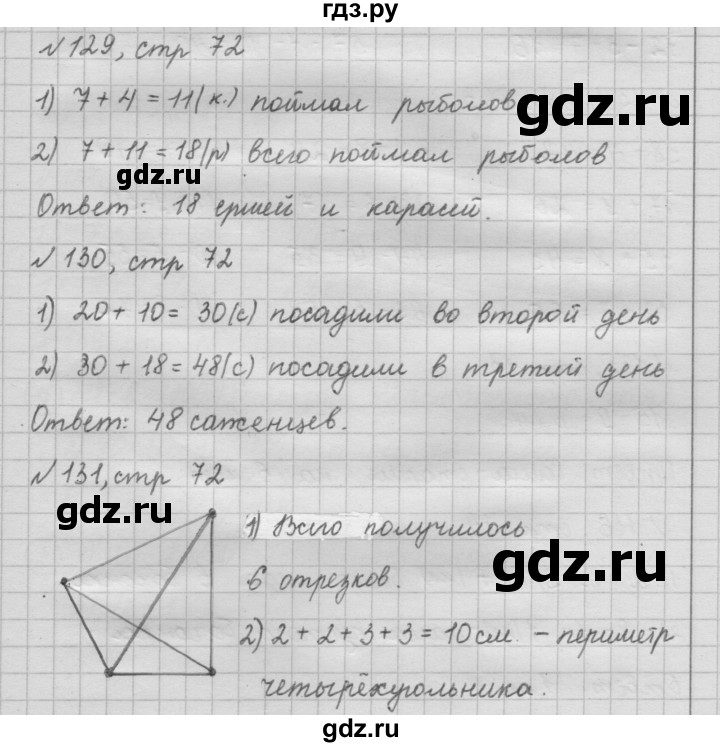 гдз.ру
№129, стр 72
1) 7 + 4 = 11 (к.) поймал рыболов
gdz.ru
2) 7 + 11 = 18 (р) всего поймал рыболов
gdz.ru
Ответ: 18 ершей и карасей.
№130, стр 72
1) 20 + 10 = 30 (с) посадили во второй день
2) 30 + 18 = 48 (с) посадили в третий день
Ответ: 48 саженцев.
№131, стр 72
gdz.ru
1) Всего получилось
6 отрезков.
gdz.ru
2) 2 + 2 + 3 + 3 = 10 см - периметр
четырёхугольника.
gdz.ru